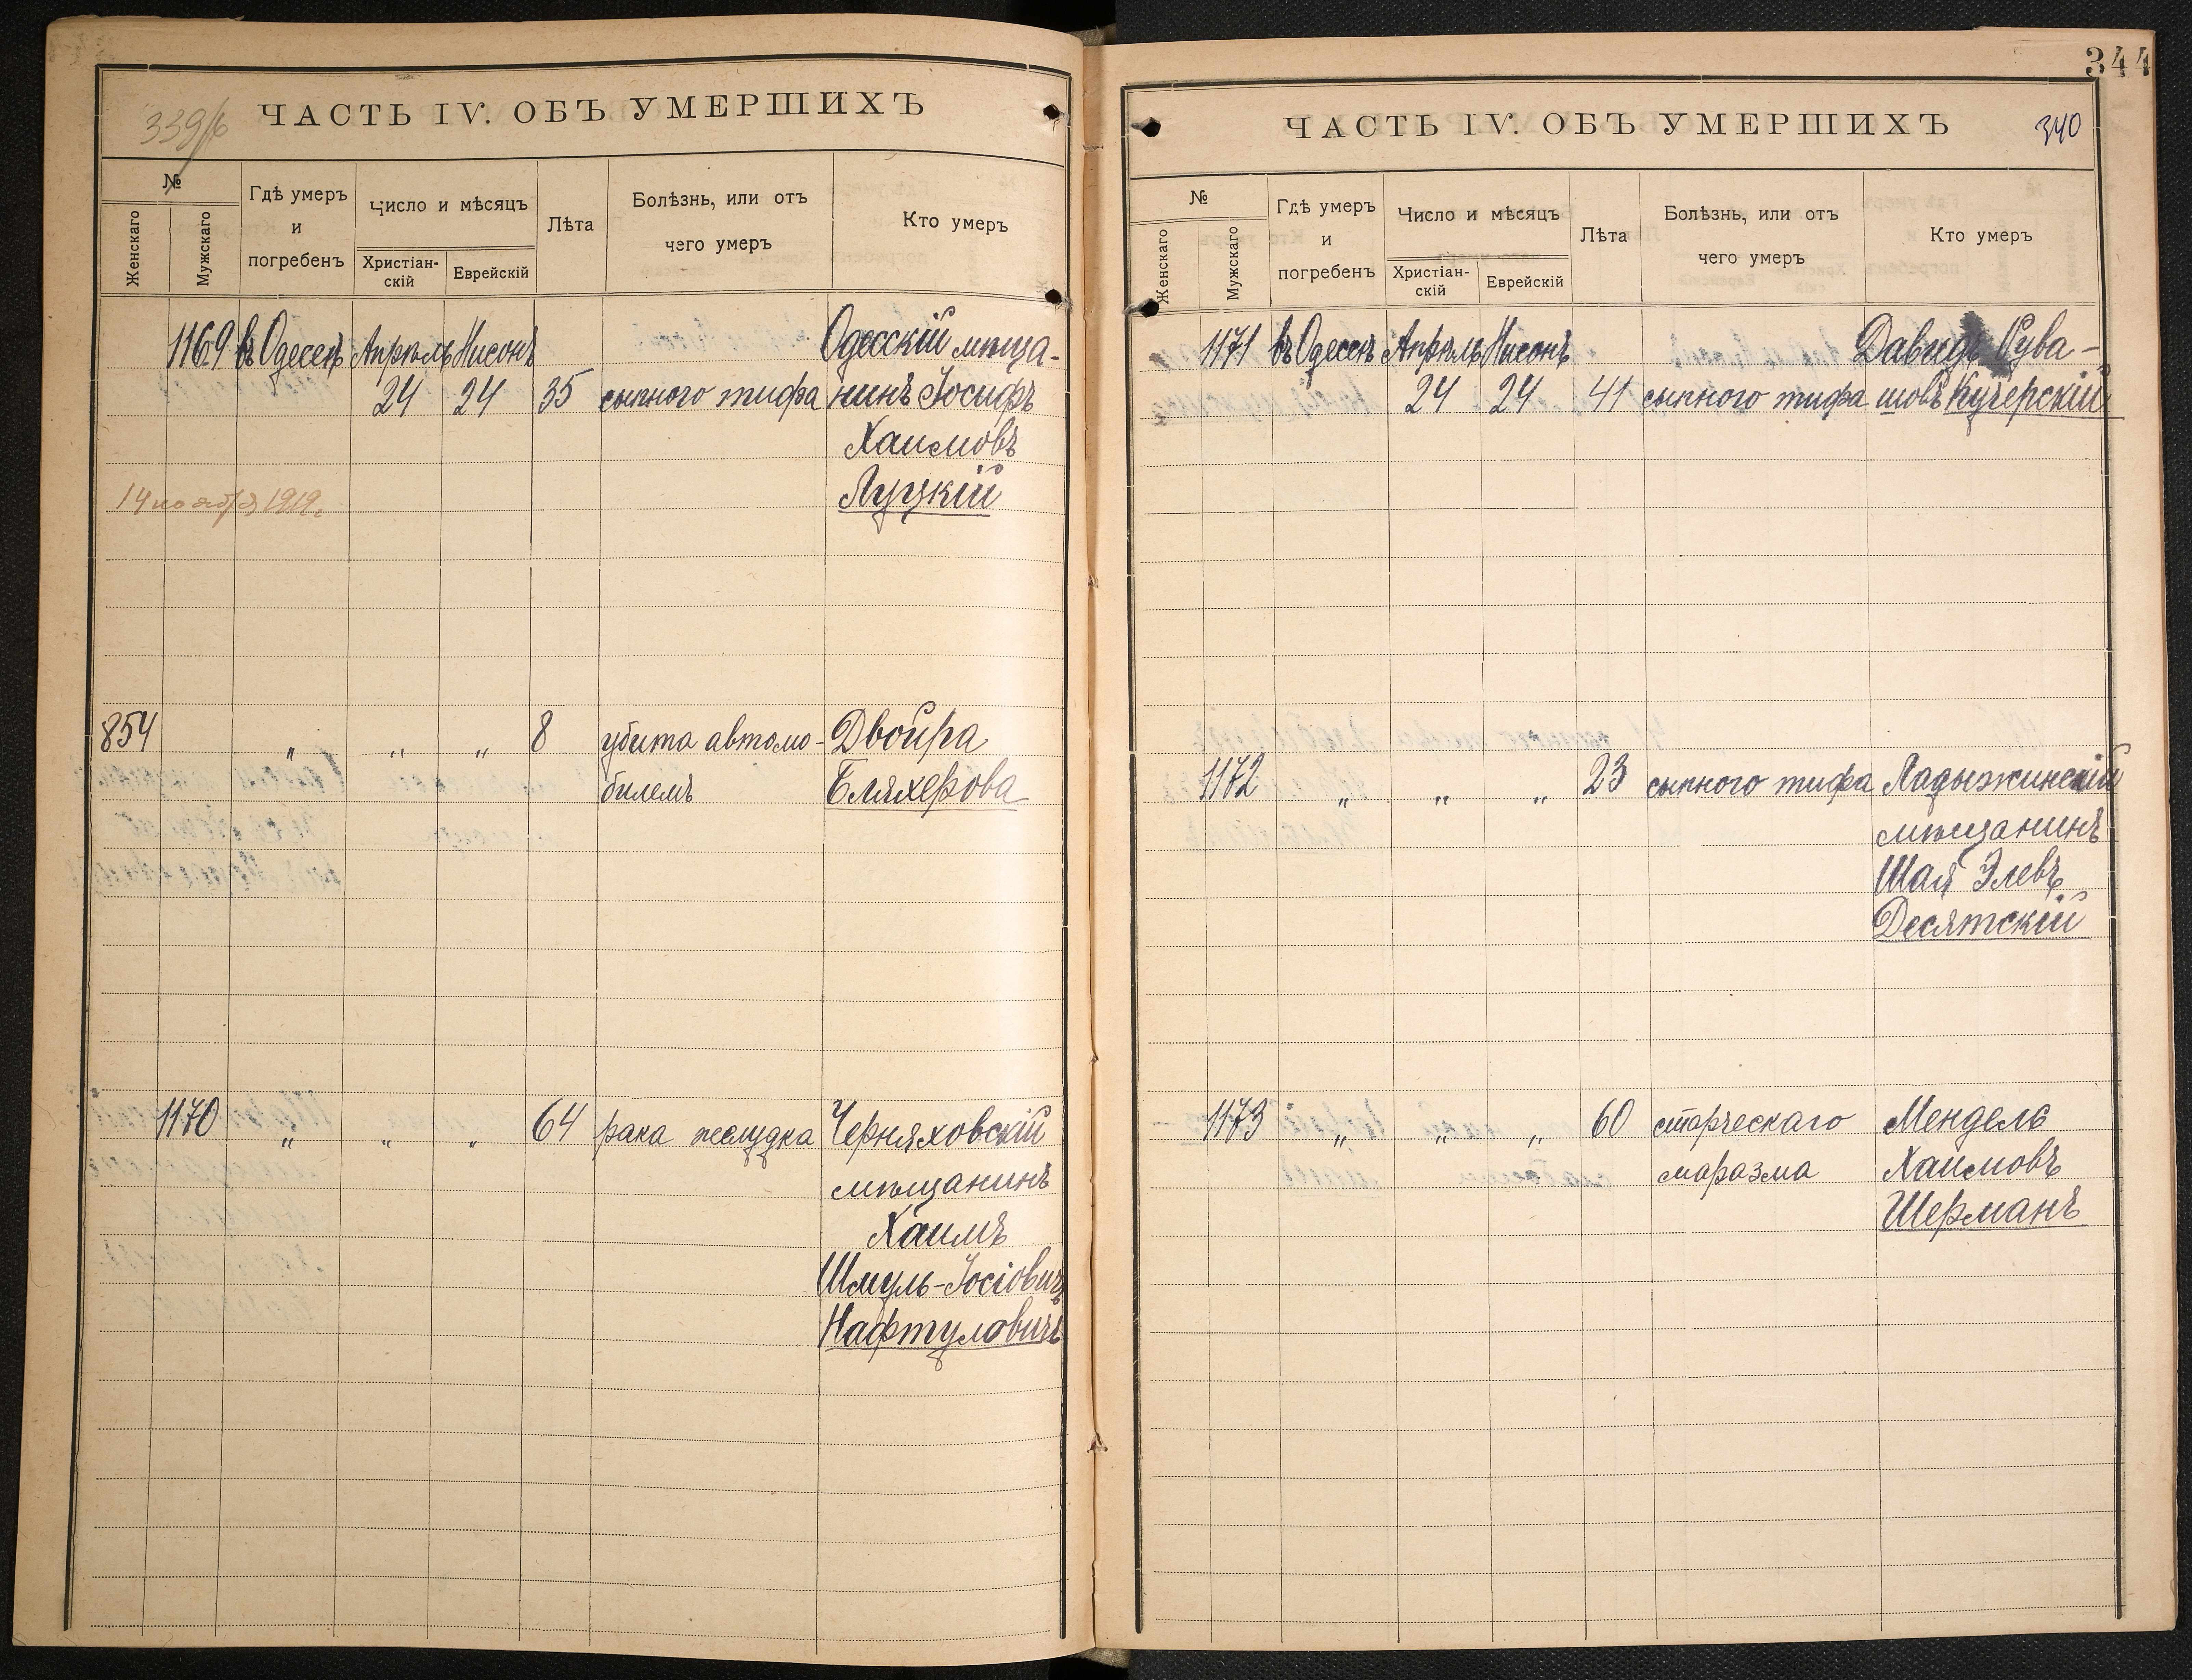 339/б
ЧАСТЬ IV. ОБЪ УМЕРШИХЪ
№
Женскаго
Мужскаго
Гдѣ умеръ
и
погребенъ
Число и мѣсяцъ
Христіан-
скій
Еврейскій
Лѣта
Болѣзнь, или отъ
чего умеръ
Кто умеръ
1169 въ Одессѣ Апрѣль Нисонъ Одесскій мѣща-
24 24 35 сыпного тифа нинъ Іосифъ
Хаимовъ
Луцкій
14 ноября 1919 г.
854 „ „ „ 8 убита автомо- Двойра
билемъ Бляхерова
1170 „ „ „ 64 рака желудка Черняховскій
мѣщанинъ
Хаимъ
Шмуль-Іосіовичъ
Нафтуловичъ
344
ЧАСТЬ IV. ОБЪ УМЕРШИХЪ 340
№
Женскаго
Мужскаго
Гдѣ умеръ
и
погребенъ
Число и мѣсяцъ
Христіан-
скій
Еврейскій
Лѣта
Болѣзнь, или отъ
чего умеръ
Кто умеръ
1171 въ Одессѣ Апрѣль Нисонъ Давидъ Сува-
24 24 41 сыпного тифа шовъ Кучерскій
1172 „ „ „ 23 сыпного тифа Ладыжинскій
мѣщанинъ
Шая Элевъ
Десятскій
1173 „ „ „ 60 старческаго Мендель
маразма Хаимовъ
Шерманъ